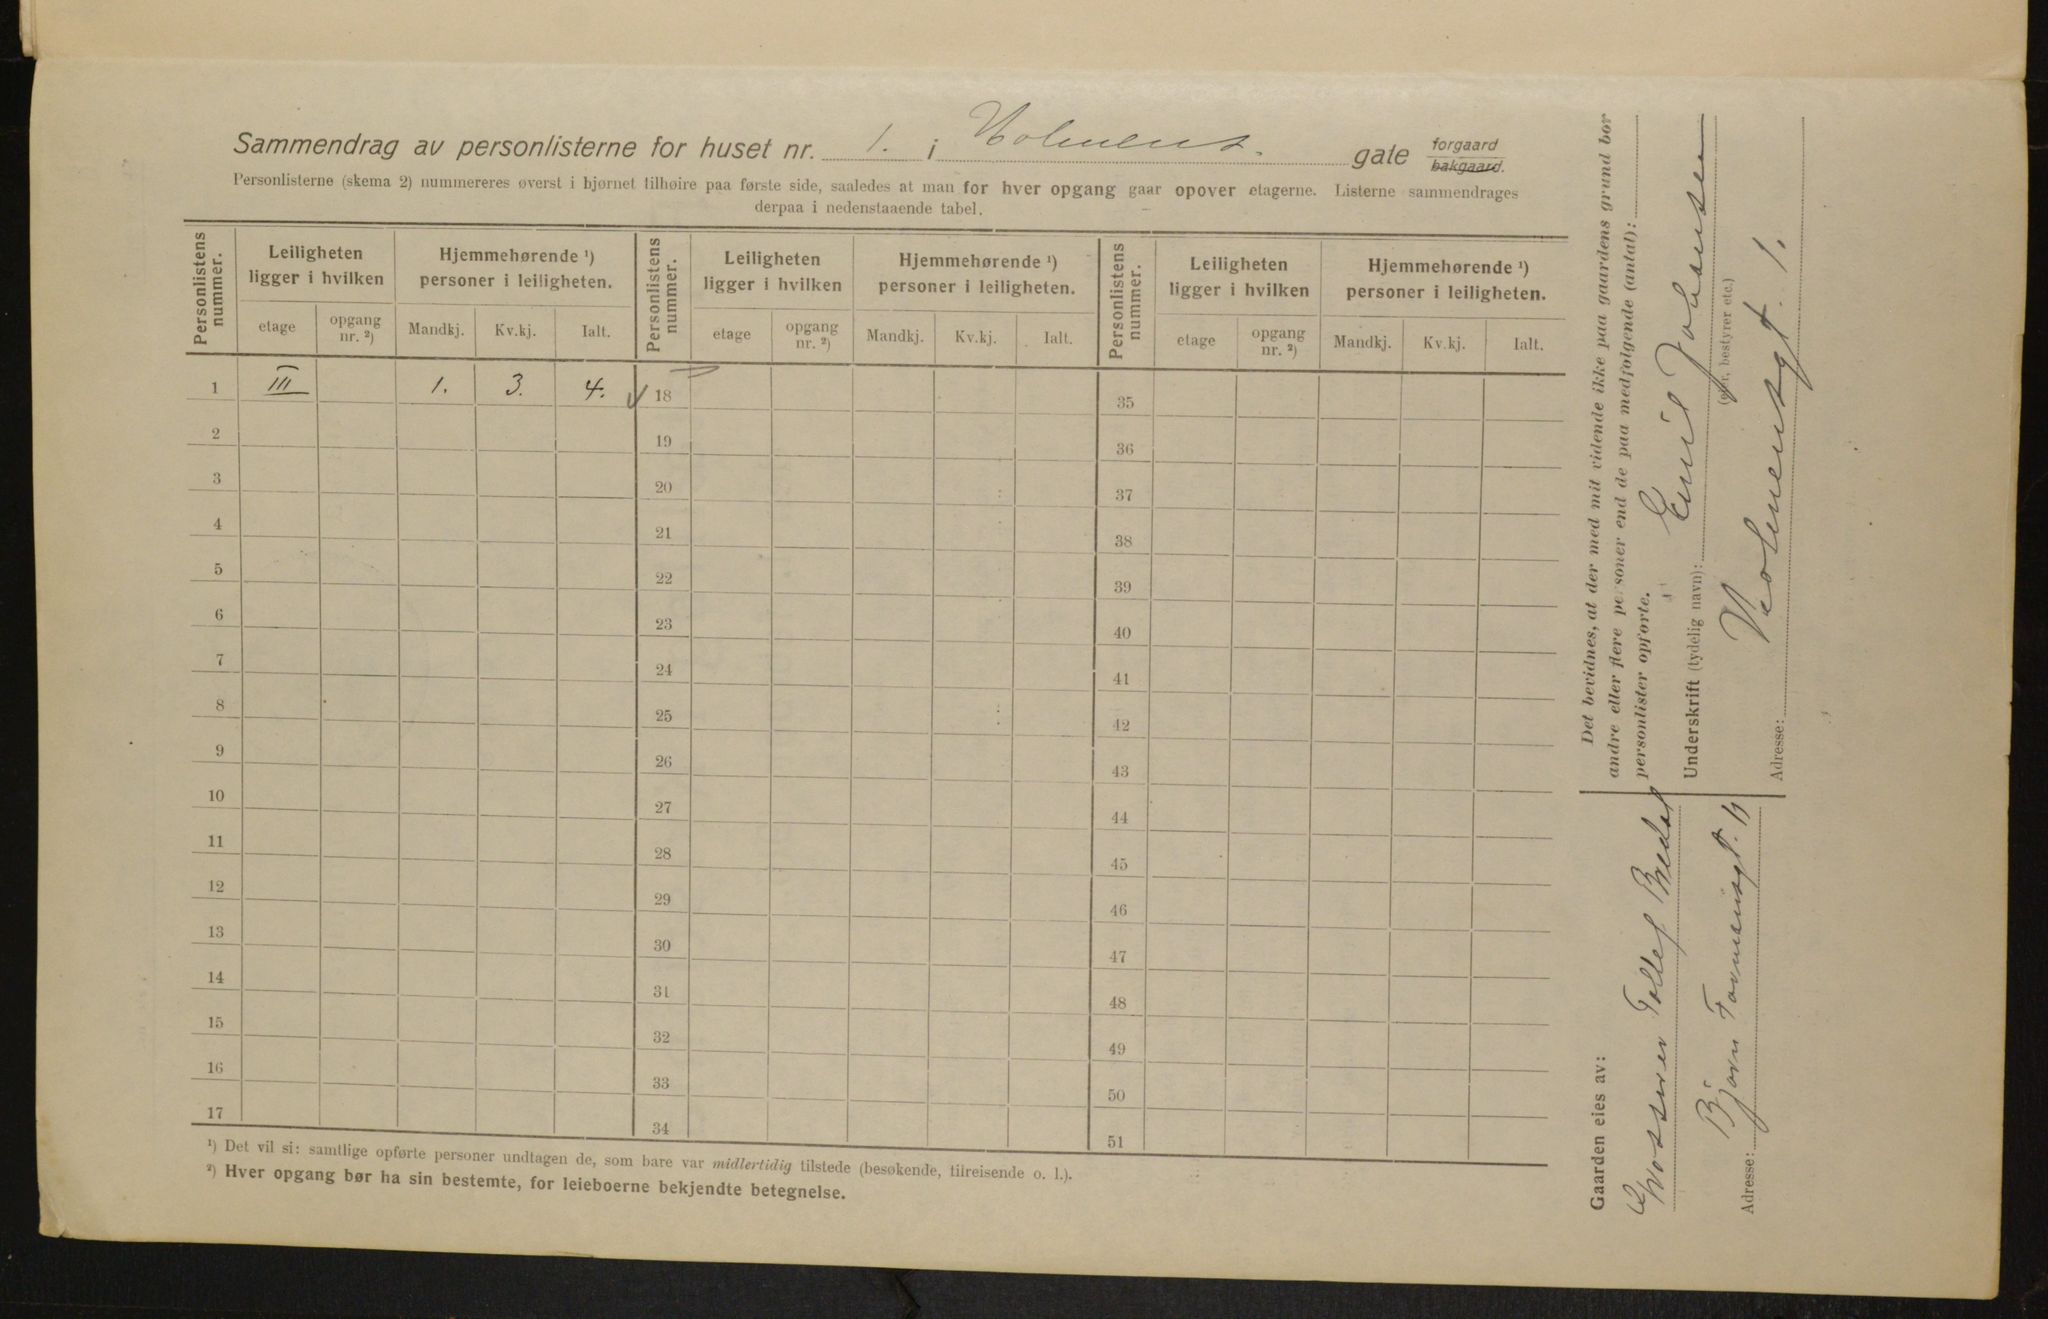 Sammendrag av personlisterne for huset nr. 1. i Holmens. gate forgaard bakgaard.
Personlisterne (skema 2) nummereres øverst i bjørnet tilhøire paa første side, saaledes at man for hver opgang gaar opover etagerne. Listerne sammendrages
derpaa i nedenstaaende tabel.
Personlistens nummer. Leiligheten ligger i hvilken Hjemmehørende ¹) personer i leiligheten. Personlistens nummer. Leiligheten ligger i hvilken Hjemmehørende ¹) personer i leiligheten. Personlistens nummer. Leiligheten ligger i hvilken Hjemmehørende ¹) personer i leiligheten.
etage opgang nr. ²) Mandkj. Kv.kj. Ialt. etage opgang nr. ²) Mandkj. Kv.kj. Ialt. etage opgang nr. ²) Mandkj. Kv.kj. Ialt.
1 III 1. 3. 4. 18 35
2 19 36
3 20 37
4 21 38
5 22 39
6 23 40
7 24 41
8 25 42
9 26 43
10 27 44
11 28 45
12 29 46
13 30 47
14 31 48
15 32 49
16 33 50
17 34 51
¹) Det vil si: samtlige opførte personer undtagen de, som bare var midlertidig tilstede (besøkende, tilreisende o. l.).
²) Hver opgang bør ha sin bestemte, for leieboerne bekjendte betegnelse.
Det bevidnes, at der med mit vidende ikke paa gaardens grund bor
andre eller flere personer end de paa medfølgende (antal):
personlister opførte.
Underskrift (tydelig navn): Emil Johansen
(eier, bestyrer etc.)
Adresse: Holmensgt. 1.
Gaarden eies av:
Tollef Bredal
Adresse: Bjørn Farmansgt. 11